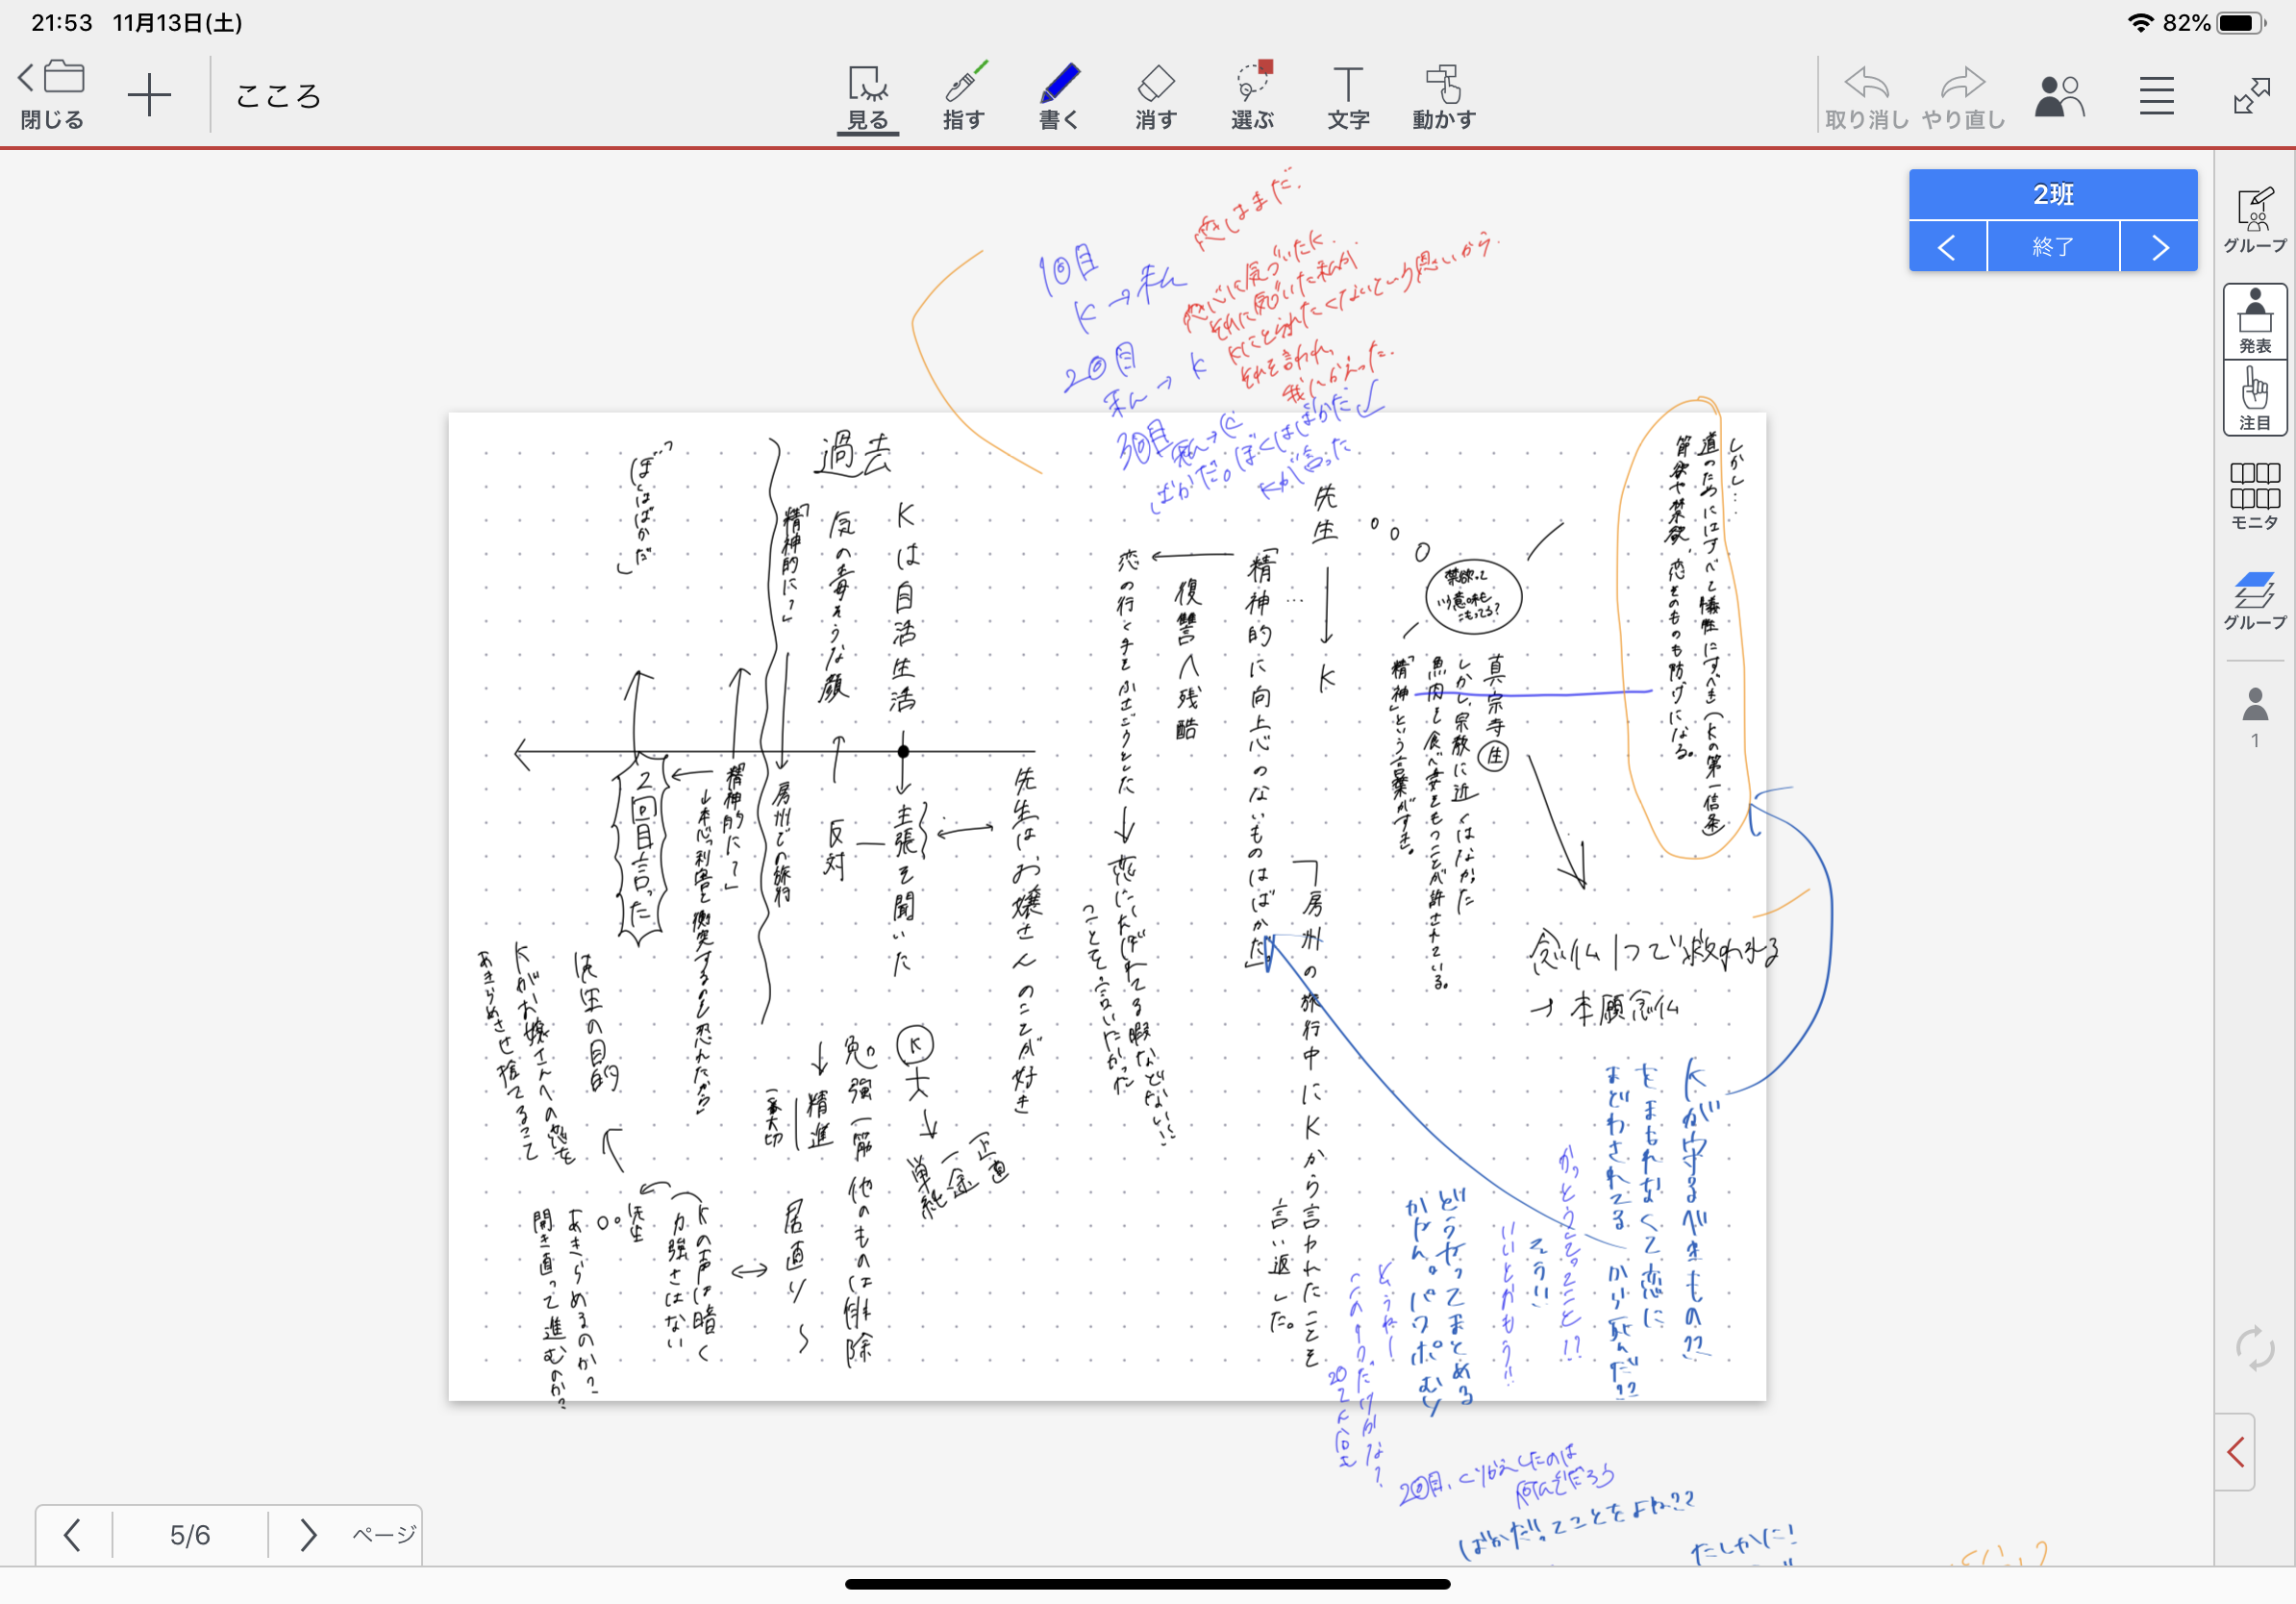 21:53 11月13日(土)
82%
閉じる
こころ
見る
指す
書く
消す
選ぶ
文字
動かす
取り消し
やり直し
2班
終了
グループ
発表
注目
モニタ
グループ
1
恋はまだ.
1回目
K→私
恋心に気づいたK.
それに気づいた私が
Kにとられたくないという思いから.
それを言われ、
我にかえった.
2回目
私→K
3回目
私→K
ばかだ。ぼくはばかだ
Kが言った
しかし…
道のためにはすべて犠牲にすべき(Kの第一信条)
節欲や禁欲、恋そのものも妨げになる。
禁欲って
いう意味も
こもってる?
真宗寺生
しかし、宗教に近くはなかった
魚肉を食べ妻をもつことが許されている。
「精神」という言葉がすき。
念仏1つで救われる
→本願念仏
先生
K
「精神的に向上心のないものはばかだ」
房州の旅行中にKから言われたことを
言い返した。
復讐へ残酷
恋の行く手をふさごうとした
恋にくたばれてる暇などない!
ことを言いたかった
先生はお嬢さんのことが好き
過去
Kは自活生活
気の毒そうな顔
主張を聞いた
反対
K
正直
一途
単純
勉強一筋 他のものは排除
精進
一番大切
居直り〜
「精神的に?」
房州での旅行
「精神的に?」
↓本心「利害と衝突するのを恐れたから」
「ぼくはばかだ」
2回目言った
先生の目的
Kがお嬢さんへの恋を
あきらめさせ捨てること
Kの声は暗く
力強さはない
先生
あきらめるのか?
開き直って進むのか?
Kが守るべきもの??
をまもれなくて恋に
まどわされてるから死んだ??
かっとうってこと!?
そうい
いいとおもう!!
どうやってまとめる
かやん。パワポむり
どうやー
2回目、くりかえしたのは
何んでだろう
ばかだ。てことをよね??
たしかに!
5/6
ページ